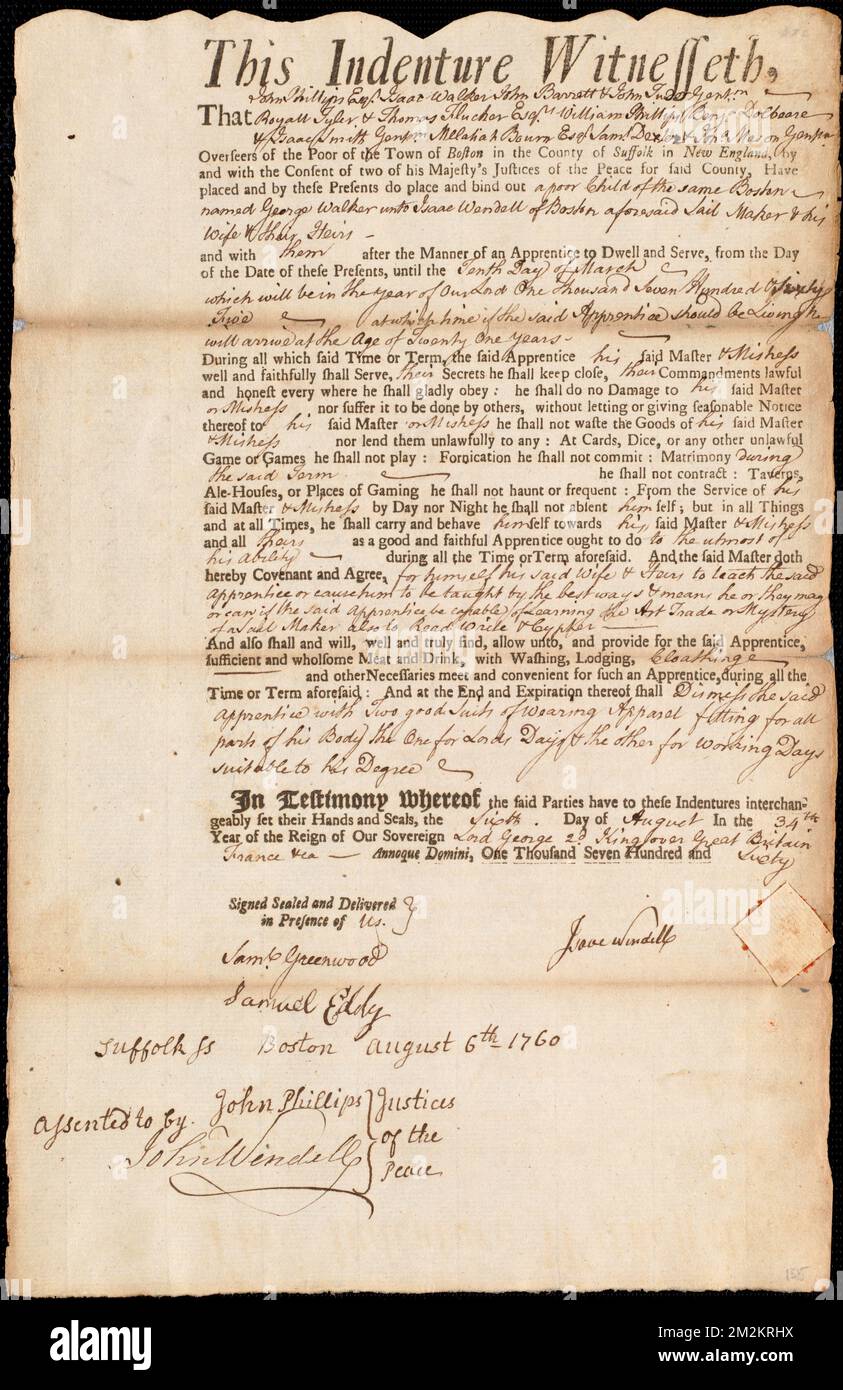 This Indenture Witnesseth,
John Phillips Esqr. Isaac Walker John Barrett & John Tudor Gentm
That Royall Tyler & Thomas Flucker Esqrs William Phillips Benj Dolbeare
& Isaac Smith Gentm Melatiah Bourn Esq Saml Dexter & Mason Gentm
Overseers of the Poor of the Town of Boston in the County of Suffolk in New England, by
and with the Consent of two of his Majesty's Justices of the Peace for said County, Have
placed and by these Presents do place and bind out a poor Child of the same Boston
named George Walker unto Isaac Wendell of Boston aforesaid Sail Maker & his
Wife & their Heirs
and with them after the Manner of an Apprentice to Dwell and Serve, from the Day
of the Date of these Presents, until the Tenth Day of March
which will be in the Year of Our Lord One Thousand Seven Hundred & Sixty
Five at which time if the said Apprentice should be Living he
will arrive at the Age of Twenty One Years
During all which said Time or Term, the said Apprentice his said Master & Mistress
well and faithfully shall Serve, their Secrets he shall keep close, their Commandments lawful
and honest every where he shall gladly obey: he shall do no Damage to his said Master
or Mistress nor suffer it to be done by others, without letting or giving seasonable Notice
thereof to his said Master or Mistress he shall not waste the Goods of his said Master
& Mistress nor lend them unlawfully to any: At Cards, Dice, or any other unlawful
Game or Games he shall not play: Fornication he shall not commit: Matrimony during
the said Term he shall not contract: Taverns,
Ale-Houses, or Places of Gaming he shall not haunt or frequent: From the Service of his
said Master & Mistress by Day nor Night he shall not absent himself; but in all Things
and at all Times, he shall carry and behave himself towards his said Master & Mistress
and all theirs as a good and faithful Apprentice ought to do to the utmost of
his ability during all the Time or Term aforesaid. And the said Master doth
hereby Covenant and Agree, for himself his said Wife & Heirs to teach the said
Apprentice or cause him to be taught by the best ways & means he or they may
or can if the said Apprentice be capable of Learning the Art Trade or Mystery
of a Sail Maker also to Read Write & Cypher
And also shall and will, well and truly find, allow unto, and provide for the said Apprentice,
sufficient and wholsome Meat and Drink, with Washing, Lodging, Cloathinge
and other Necessaries meet and convenient for such an Apprentice, during all the
Time or Term aforesaid: And at the End and Expiration thereof shall Dismess the said
Apprentice with Two good Suits of Wearing Apparel fitting for all
parts of his Body the One for Lords Days & the other for Working Days
suitable to his Degree
In Testimony whereof the said Parties have to these Indentures interchan-
geably set their Hands and Seals, the Sixth. Day of August In the 34th
Year of the Reign of Our Sovereign Lord George 2d King over Great Britain
France &ca Annoque Domini, One Thousand Seven Hundred and Sixty
Signed Sealed and Delivered
in Presence of Us.
Saml. Greenwood
Isaac Windell
Samuel Eddy
Suffolk ss Boston August 6th 1760
Assented to by. John Phillips Justices
of the
John Wendell Peace
155
alamy
Image ID: 2M2KRHX
www.alamy.com